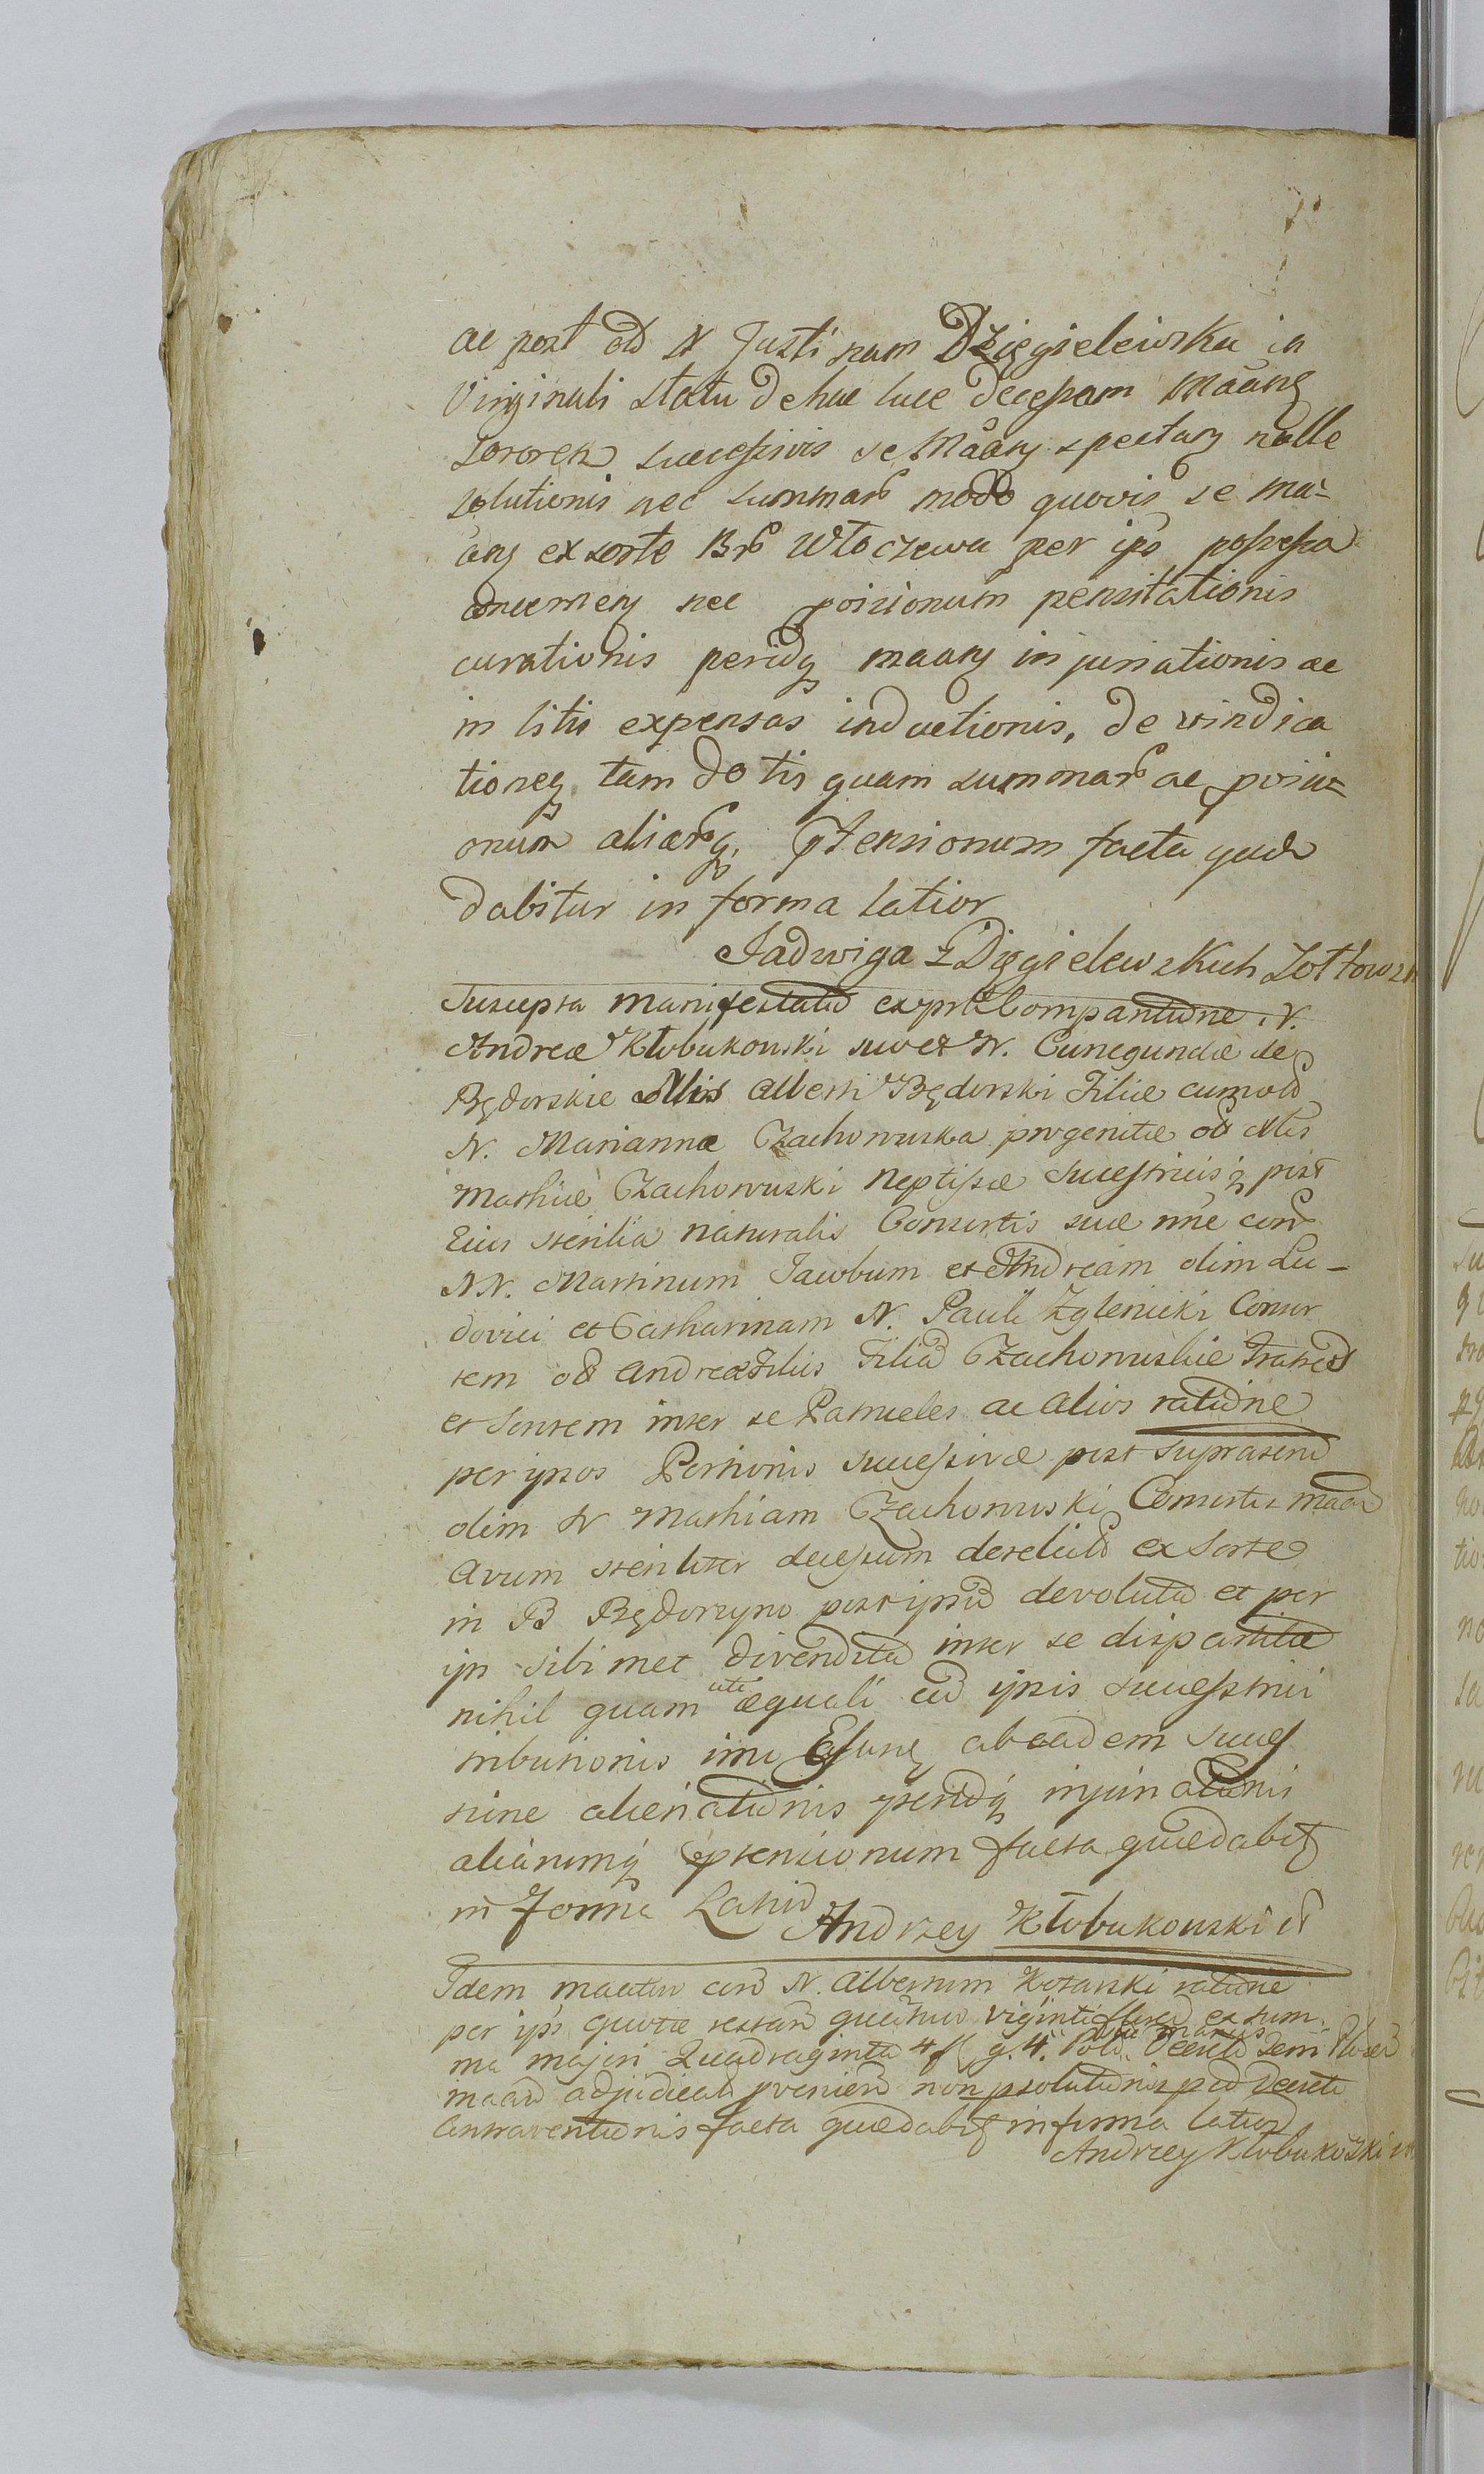 ac post od N Justinam Dzięgielewska in
Virginali statu de hac luce decessam Maang
sororem successivis se Maang spectang nolle
solutionis nec summarb modo quovis se ma=
ang ex sorte Brb Włoczewa per ips possessa
concerneng nec poisionum pensitationis
curationis peridg maang injuriationis ac
in litis expensas inductionis, de vindica
tioneg tam dotis quam summarb ac poisi=
onum aliarbq ptensionum facta quae
dabitur in forma latior
Jadwiga z Dięgielewskich Żołtows
Suscepta manifestatio ex prte Compantione N.
Andreæ Kłobukowski suo et N. Cunegundæ de
Będorskie Mis Alberti Będorski Filiæ cum old
N. Marianna Czachorowska progenitæ od Mis
Mathiæ Czachorowski neptissæ Successtricisq post
Eius sterilia naturalis Consortis suæ nne con
NN. Martinum Jacobum et Andream olim Lu-
dovici et Catharinam N. Pauli Zglenicki Consor
tem od Andreæ Filiis Filia Czachorowskie Fratres
et Sororem inter se Patrueles ac alios ratione
per ipsos Portionis successivæ post suprascrip
olim N Mathiam Czachorowski Consortis maan
Avum steriliter decessum derelict ex Sorte
in B Będorzyno post ipsu devoluta et per
ips sibimet divendita inter se dispartitæ
nihil quam uti æquali cu ipsis successtrici
tributionis imo Essang ab eadem Success
sione alienationis peridq injuriationis
aliarumq ptensionum facta quæ dabit
in Forma Latio Andrzey Kłobukowski N
Idem maatur con N. Albertum Kosarski ratione
per ips quotæ restan quatuor viginti floren ex sum
ma majori Quadraginta 4 fl g. 4. Pol. Decreto Terri Plocen
maan adjudicat provenien non psolutionis pdo Decreti
Contraventionis facta quæ dabit in forma latior
Andrzey Kłobukowski